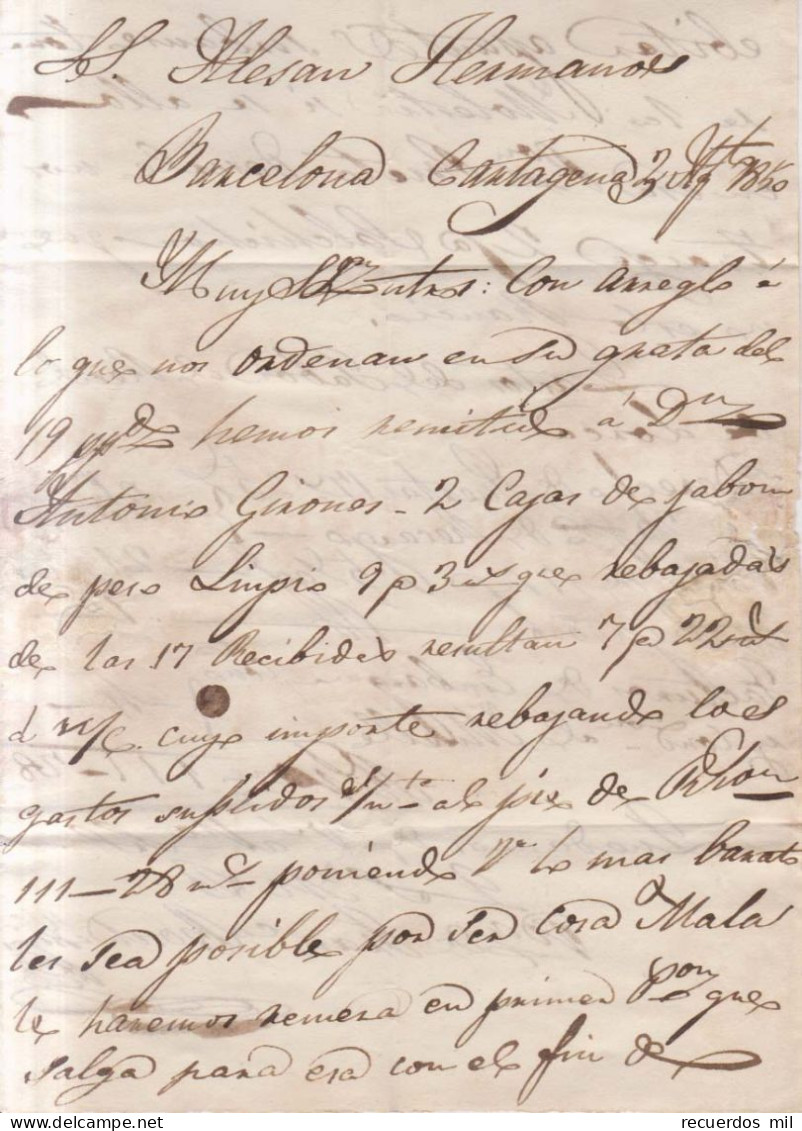 SS. Alesan Hermanos
Barcelona Cartagena 2 Agto 1840
Muy Sres ntros: Con arreglo á
lo que nos ordenan en su grata del
19 ppdo hemos remitido á Dn
Antonio Girones - 2 Cajas de jabon
de peso Limpio 9 p 3 que rebajadas
de las 17 Recibidas resultan 7 p 22
d n/c. cuyo importe rebajando los
gastos suplidos al pie de
111-28 mz poniendo Vs lo mas barato
les sea posible por ser cosa Mala
le haremos remesa en primer que
salga para esa con el fin de
recuerdos mil